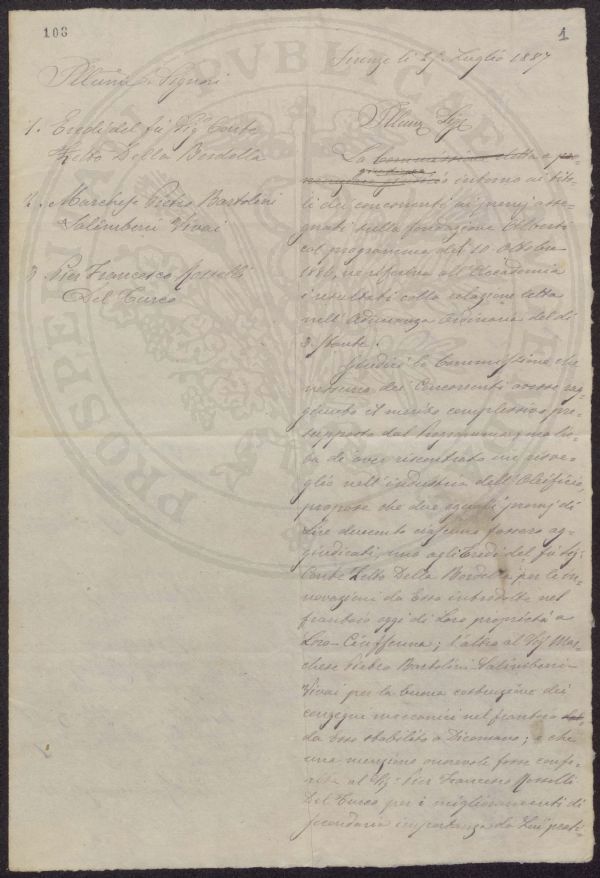 108
1
Firenze li 27 Luglio 1887
Illmi Signori
1. Eredi del fu Sig Conte
Zelto Della Bordella
2. Marchese Pietro Bartolini
Salimbeni Vivai
3 Pier Francesco Rosselli
Del Turco
Illmo Sige
La Commissione eletta a
giudicare intorno ai tito-
li dei concorrenti ai premj asse-
gnati sulla fondazione Alberti
col programma del 10 Ottobre
1886, ne riferiva all'Accademia
i resultati colla relazione letta
nell'Adunanza Ordinaria del dì
3 stante.
Giudicò la Commissione che
nessuno dei Concorrenti avesse rag-
giunto il merito complessivo pre-
supposto dal Programma; ma lie-
ta di aver riscontrato un risve-
glio nell'industria dell'Oleificio,
propose che due eguali premj di
Lire duecento ciascuno fossero ag-
giudicati, uno agli Eredi del fu Sig.
Conte Zelto Della Bordella per le in-
novazioni da Esso introdotte nel
frantoio oggi di Loro proprietà a
Loro-Ciuffenna; l'altro al Sig Mar-
chese Pietro Bartolini-Salimbeni-
Vivai per la buona costruzione dei
congegni meccanici nel frantoio
da Esso stabilito a Dicomano; e che
una menzione onorevole fosse confe-
rita al Sig. Pier Francesco Rosselli
Del Turco per i miglioramenti di
secondaria importanza da Lui prati-
PROSPERITATI PVBLICAE